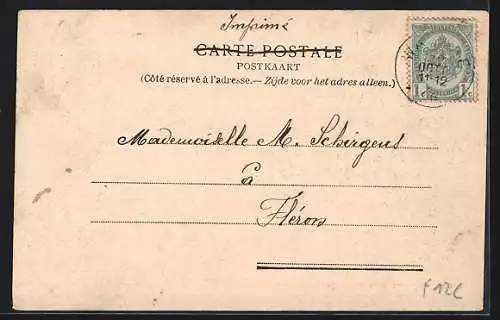 Imprimé
CARTE POSTALE
POSTKAART
(Côté réservé à l'adresse.— Zijde voor het adres alleen.)
1 1
Mademoiselle M. Schirgens
à
Fléron